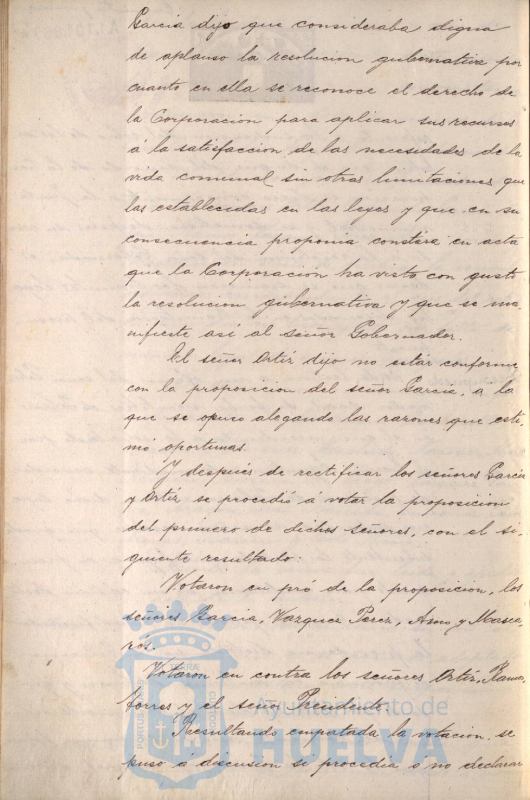 Garcia dijo que consideraba digna
de aplauso la resolucion gubernativa por
cuanto en ella se reconoce el derecho de
la Corporacion para aplicar sus recursos
á la satisfaccion de las necesidades de la
vida comunal sin otras limitaciones que
las establecidas en las leyes y que en su
consecuencia proponia constara en acta
que la Corporación ha visto con gusto
la resolucion gubernativa y que se ma-
nifieste asi al señor Gobernador.
El señor Ortíz dijo no estar conforme
con la proposicion del señor Garcia, a la
que se opuso alegando las razones que esti-
mó oportunas.
Y después de rectificar los señores Garcia
y Ortíz se procedió á votar la proposicion
del primero de dichos señores, con el si-
guiente resultado:
Votaron en pró de la proposicion, los
señores Garcia, Vazquez Perez, y Masca-
ros.
Votaron en contra los señores Ortíz,
torres y el señor Presidente.
Resultando empatada la votacion, se
puso a discusion si procedia o no declarar
Ayuntamiento de
HUELVA